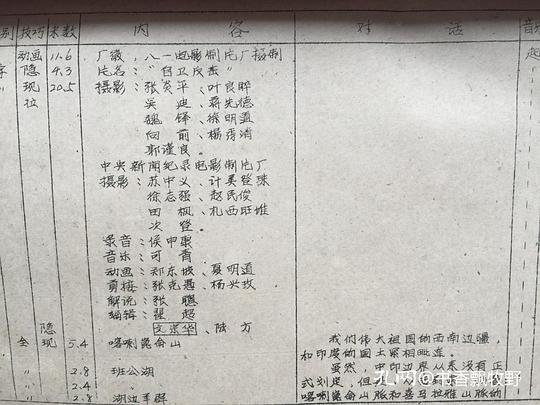 别 技巧 米数 内 容 对 话 音
动画 11.6 厂徽，八一电影制片厂摄制
隐 4.3 片名：“自卫反击”
现 20.5 摄影：张英平、叶良晬
拉 吴迪、蒋先德
魏铎、徐明温
向前、杨秀清
郭谨良。
中央新闻纪录电影制片厂
摄影：苏中义、计美登珠
徐志强、赵民俊
田枫、札西旺堆
次登。
录音：侯申
音乐：可青
动画：郑东城、夏明道
剪接：张克惠、杨兴玫
解说：张聪
编辑：瞿超
隐 文宗华、陆方
全 现 5.4 喀喇昆仑山
2.8 班公湖
2.4
2.8 湖边羊群
我们伟大祖国的西南边疆
和印度的国土紧相毗连。
虽然，中印边界从来没有正
式划定，但
喀喇昆仑山脉和喜马拉雅山脉的
孔网@书香飘牧野